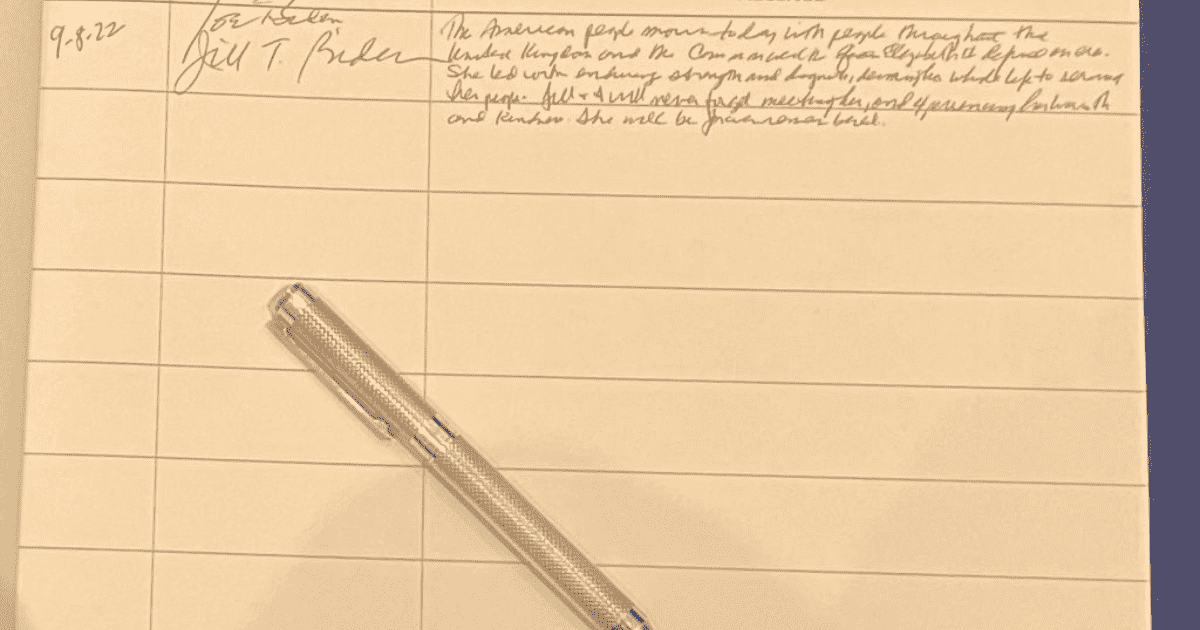 9-8-22
Joe Biden
Jill T. Biden
The American people mourn today with people throughout the
United Kingdom and the Commonwealth. Queen Elizabeth II defined an era.
She led with enduring strength and dignity, devoting her whole life to serving
her people. Jill & I will never forget meeting her, and experiencing her warmth
and kindness. She will be forever remembered.